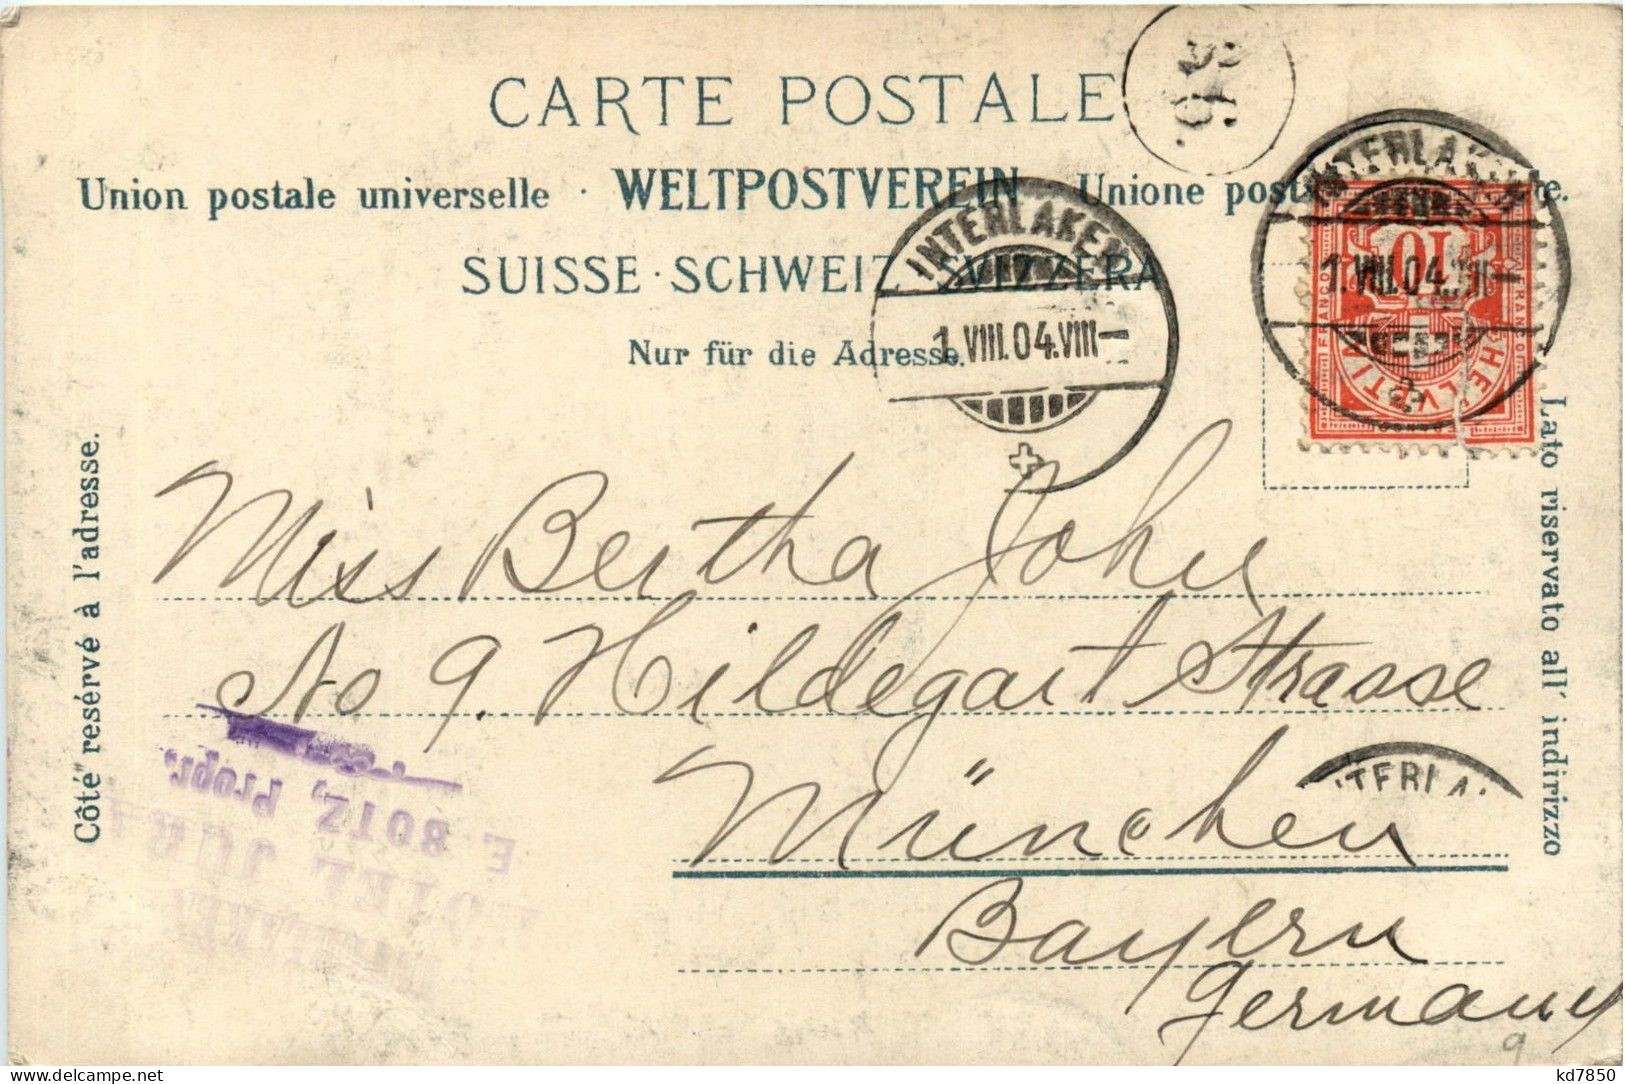 CARTE POSTALE
Union postale universelle · WELTPOSTVEREIN · Unione post
SUISSE · SCHWEIZ · SVIZZERA
Nur für die Adresse.
INTERLAKEN
1.VIII.04.VIII—
INTERLAKEN
1.VIII.04.
10
FRANCO
FRANCO
HELVETIA
Côté resérvé à l'adresse.
Lato riservato all' indirizzo
Miss Bertha John
No 9. Hildegart Strasse
München
Bayern
Germany
9
E BOTZ, Propr.
HOTEL JURA
INTERLAKEN
TERLA
kd7850